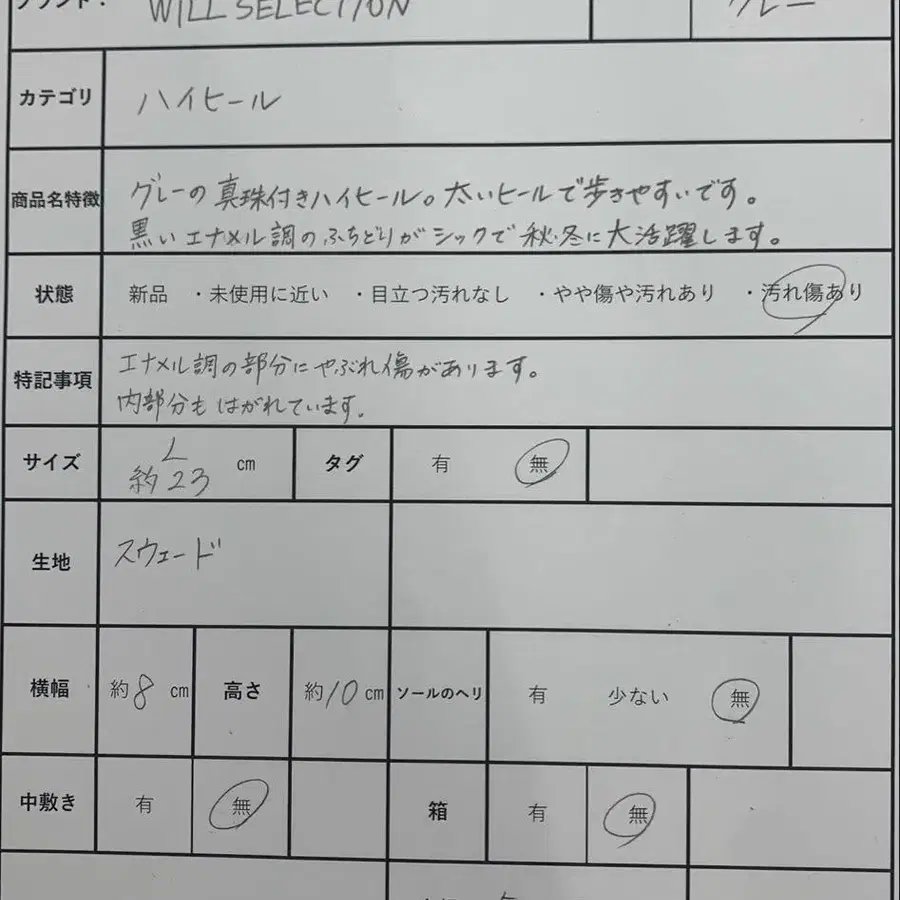 ブランド： WILL SELECTION グレー
カテゴリ ハイヒール
商品名特徴 グレーの真珠付きハイヒール。太いヒールで歩きやすいです。
黒いエナメル調のふちどりがシックで秋・冬に大活躍します。
状態 新品 ・未使用に近い ・目立つ汚れなし ・やや傷や汚れあり ・汚れ傷あり
特記事項 エナメル調の部分にやぶれ傷があります。
内部分もはがれています。
サイズ L 約23 cm タグ 有 無
生地 スウェード
横幅 約8 cm 高さ 約10cm ソールのヘリ 有 少ない 無
中敷き 有 無 箱 有 無